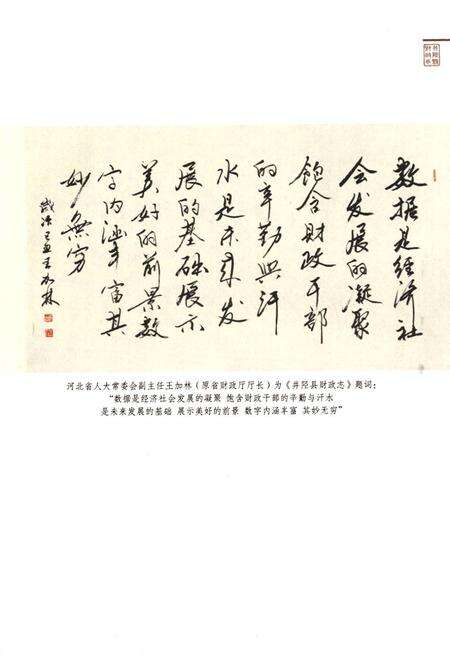 数据是经济社
会发展的凝聚
饱含财政干部
的辛勤与汗
水是未来发
展的基础展示
美好的前景数
字内涵丰富其
妙無穷
歲次己丑王加林
河北省人大常委会副主任王加林（原省财政厅厅长）为《井陉县财政志》题词：
“数据是经济社会发展的凝聚 饱含财政干部的辛勤与汗水
是未来发展的基础 展示美好的前景 数字内涵丰富 其妙无穷”